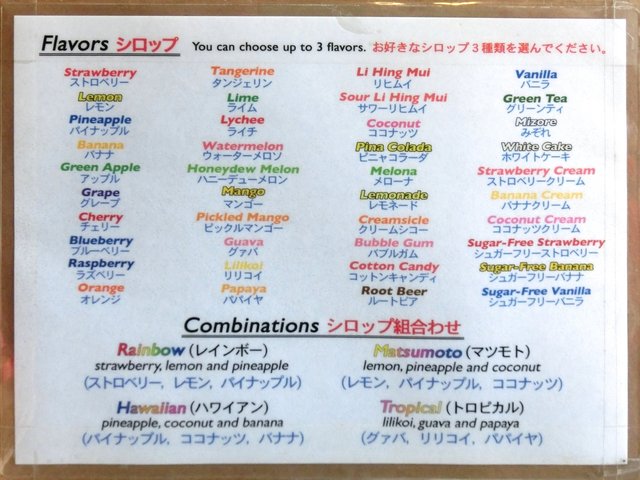 Flavors シロップ You can choose up to 3 flavors. お好きなシロップ3種類を選んでください。
Strawberry
ストロベリー
Lemon
レモン
Pineapple
パイナップル
Banana
バナナ
Green Apple
アップル
Grape
グレープ
Cherry
チェリー
Blueberry
ブルーベリー
Raspberry
ラズベリー
Orange
オレンジ
Tangerine
タンジェリン
Lime
ライム
Lychee
ライチ
Watermelon
ウォーターメロソ
Honeydew Melon
ハニーデューメロン
Mango
マンゴー
Pickled Mango
ピックルマンゴー
Guava
グァバ
Lilikoi
リリコイ
Papaya
パパイヤ
Li Hing Mui
リヒムイ
Sour Li Hing Mui
サワーリヒムイ
Coconut
ココナッツ
Pina Colada
ピニャコラーダ
Melona
メローナ
Lemonade
レモネード
Creamsicle
クリームシコー
Bubble Gum
バブルガム
Cotton Candy
コットンキャンディ
Root Beer
ルートビア
Vanilla
バニラ
Green Tea
グリーンティ
Mizore
みぞれ
White Cake
ホワイトケーキ
Strawberry Cream
ストロベリークリーム
Banana Cream
バナナクリーム
Coconut Cream
ココナッツクリーム
Sugar-Free Strawberry
シュガーフリーストロベリー
Sugar-Free Banana
シュガーフリーバナナ
Sugar-Free Vanilla
シュガーフリーバニラ
Combinations シロップ組合わせ
Rainbow (レインボー)
strawberry, lemon and pineapple
(ストロベリー, レモン, パイナップル)
Matsumoto (マツモト)
lemon, pineapple and coconut
(レモン, パイナップル, ココナッツ)
Hawaiian (ハワイアン)
pineapple, coconut and banana
(パイナップル, ココナッツ, バナナ)
Tropical (トロピカル)
lilikoi, guava and papaya
(グァバ, リリコイ, パパイヤ)